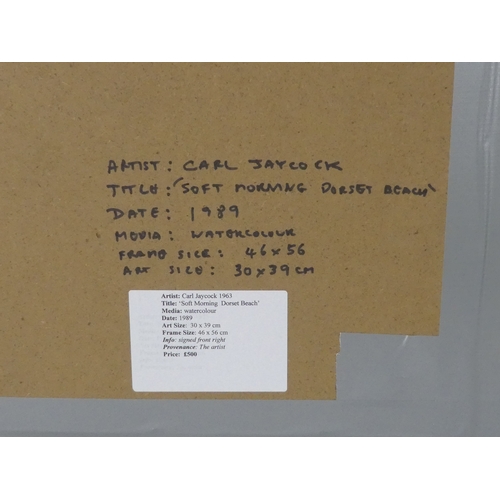 ARTIST: CARL JAYCOCK
TITLE: 'SOFT MORNING DORSET BEACH'
DATE: 1989
MEDIA: WATERCOLOUR
FRAME SIZE: 46 x 56
ART SIZE: 30 x 39 cm
Artist: Carl Jaycock 1963
Title: 'Soft Morning Dorset Beach'
Media: watercolour
Date: 1989
Art Size: 30 x 39 cm
Frame Size: 46 x 56 cm
Info: signed front right
Provenance: The artist
Price: £500